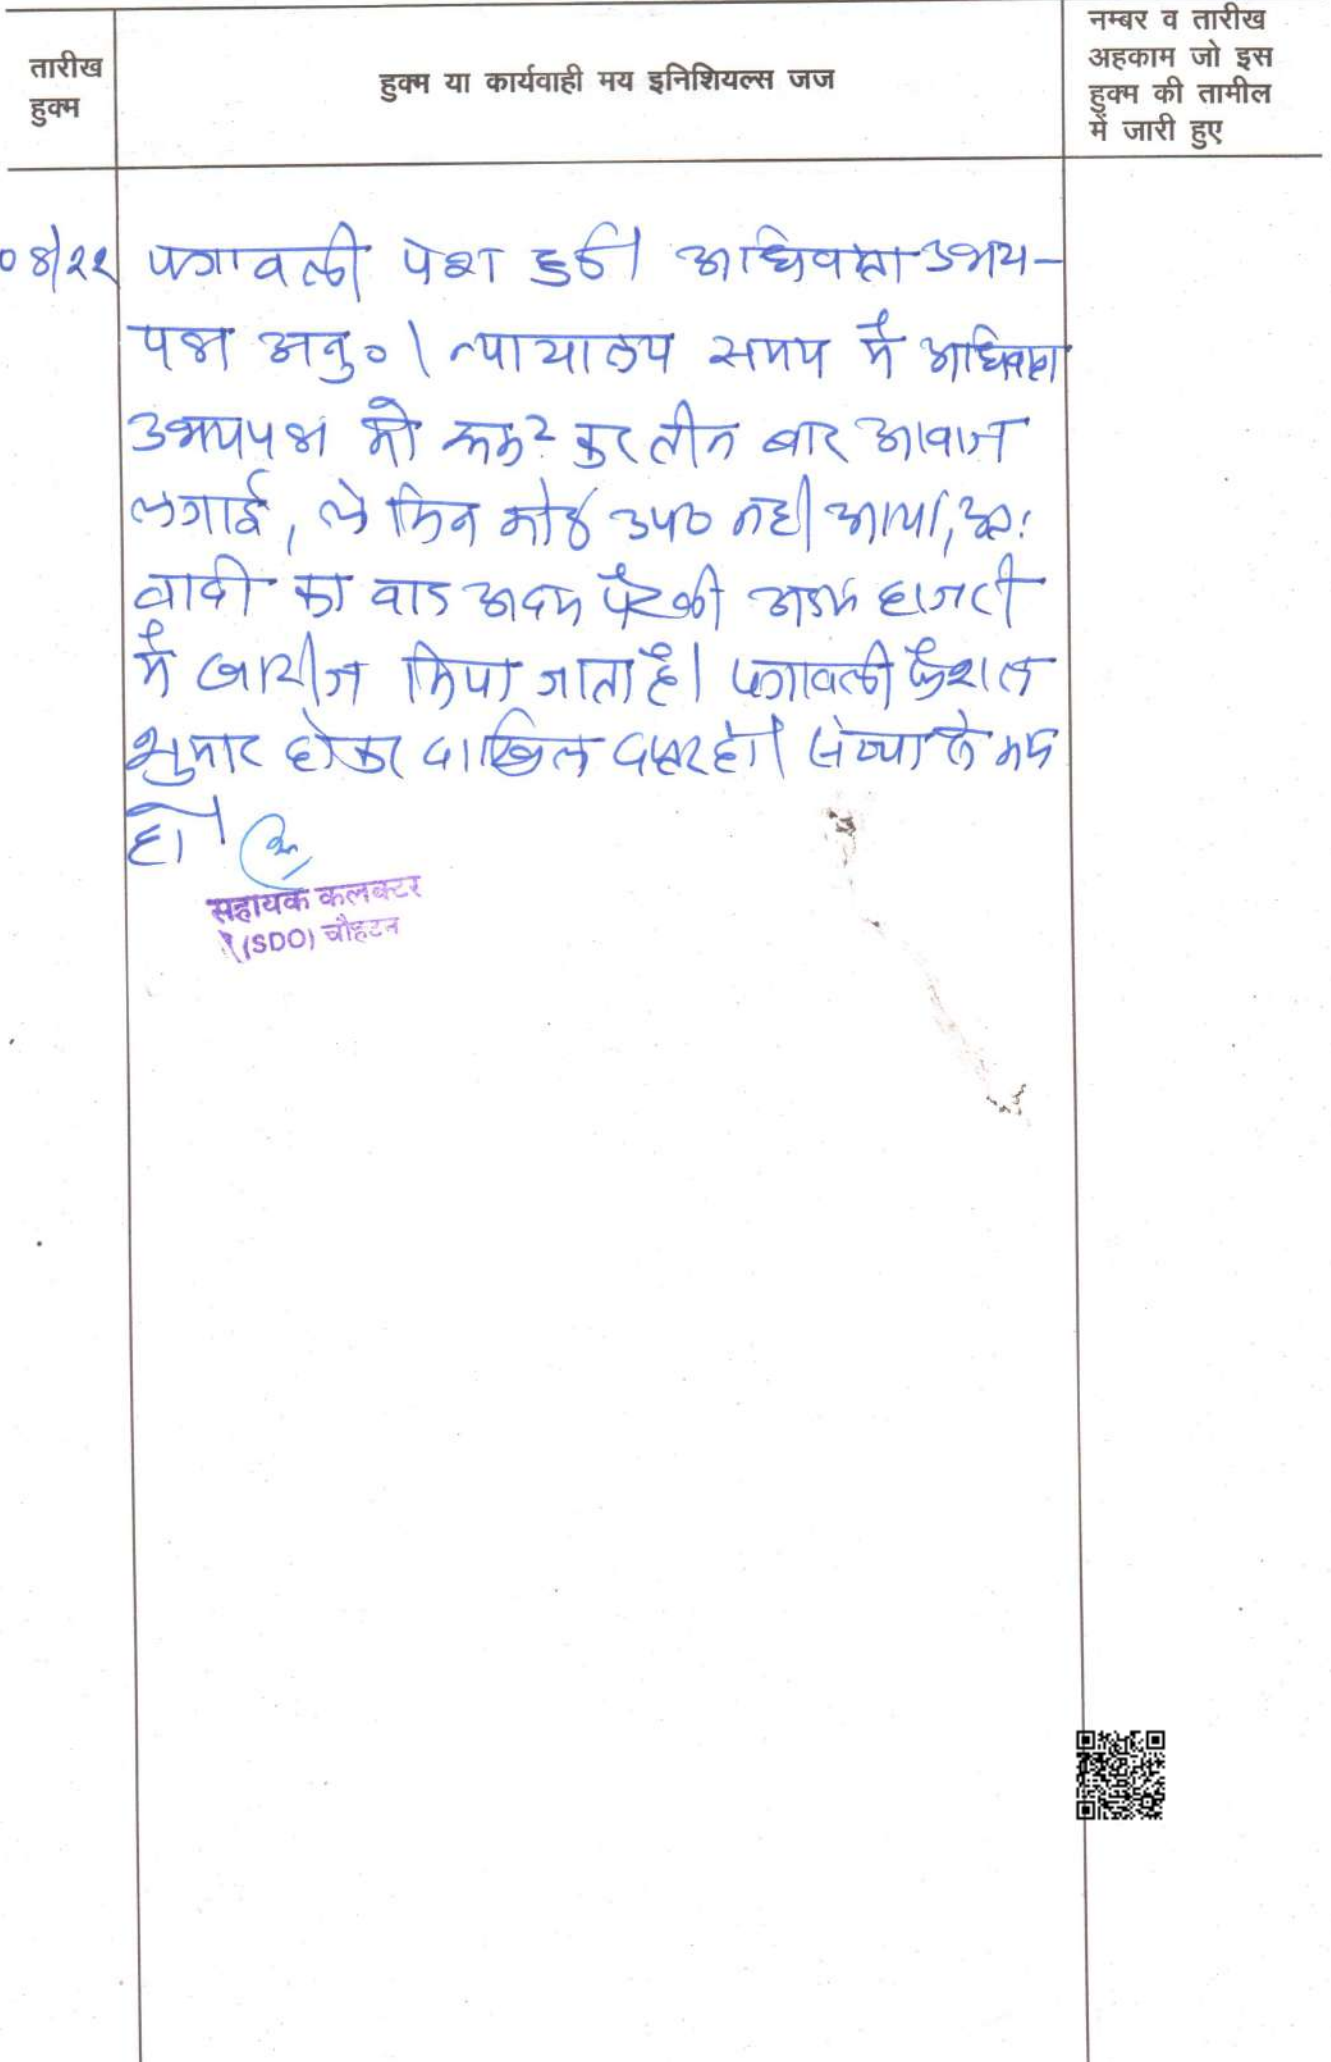 तारीख
हुक्म
हुक्म या कार्यवाही मय इनिशियल्स जज
नम्बर व तारीख
अहकाम जो इस
हुक्म की तामील
में जारी हुए
पत्रावली पेश हुई। अधिवक्ता उभय-
पक्ष अनु०। न्यायालय समय में अधिवक्ता
उभयपक्ष को रूक २ कर तीन बार आवाज
लगाई, लेकिन कोई उप० नही आया, अतः
वादी का वाद अदम पैरवी अदम हाजरी
में खारीज किया जाता है। पत्रावली फैशल
शुमार होकर दाखिल दफ्तर हो। संख्या से कम
हो।
सहायक कलक्टर
(SDO) चौहटन